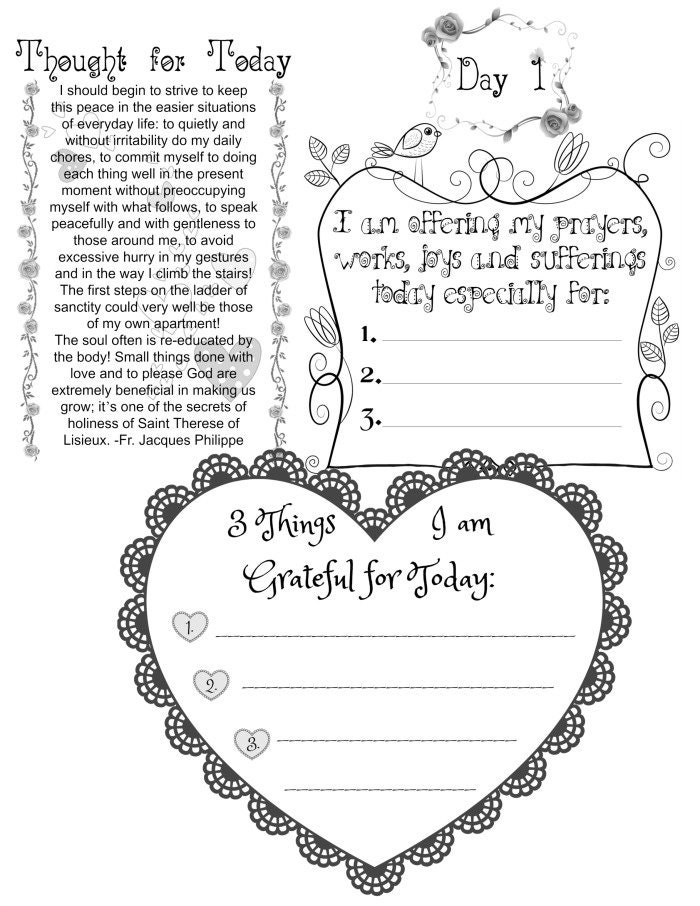 Thought for Today
I should begin to strive to keep
this peace in the easier situations
of everyday life: to quietly and
without irritability do my daily
chores, to commit myself to doing
each thing well in the present
moment without preoccupying
myself with what follows, to speak
peacefully and with gentleness to
those around me, to avoid
excessive hurry in my gestures
and in the way I climb the stairs!
The first steps on the ladder of
sanctity could very well be those
of my own apartment!
The soul often is re-educated by
the body! Small things done with
love and to please God are
extremely beneficial in making us
grow; it's one of the secrets of
holiness of Saint Therese of
Lisieux. -Fr. Jacques Philippe
Day 1
I am offering my prayers,
works, joys and sufferings
today especially for:
1.
2.
3.
3 Things I am
Grateful for Today:
1.
2.
3.